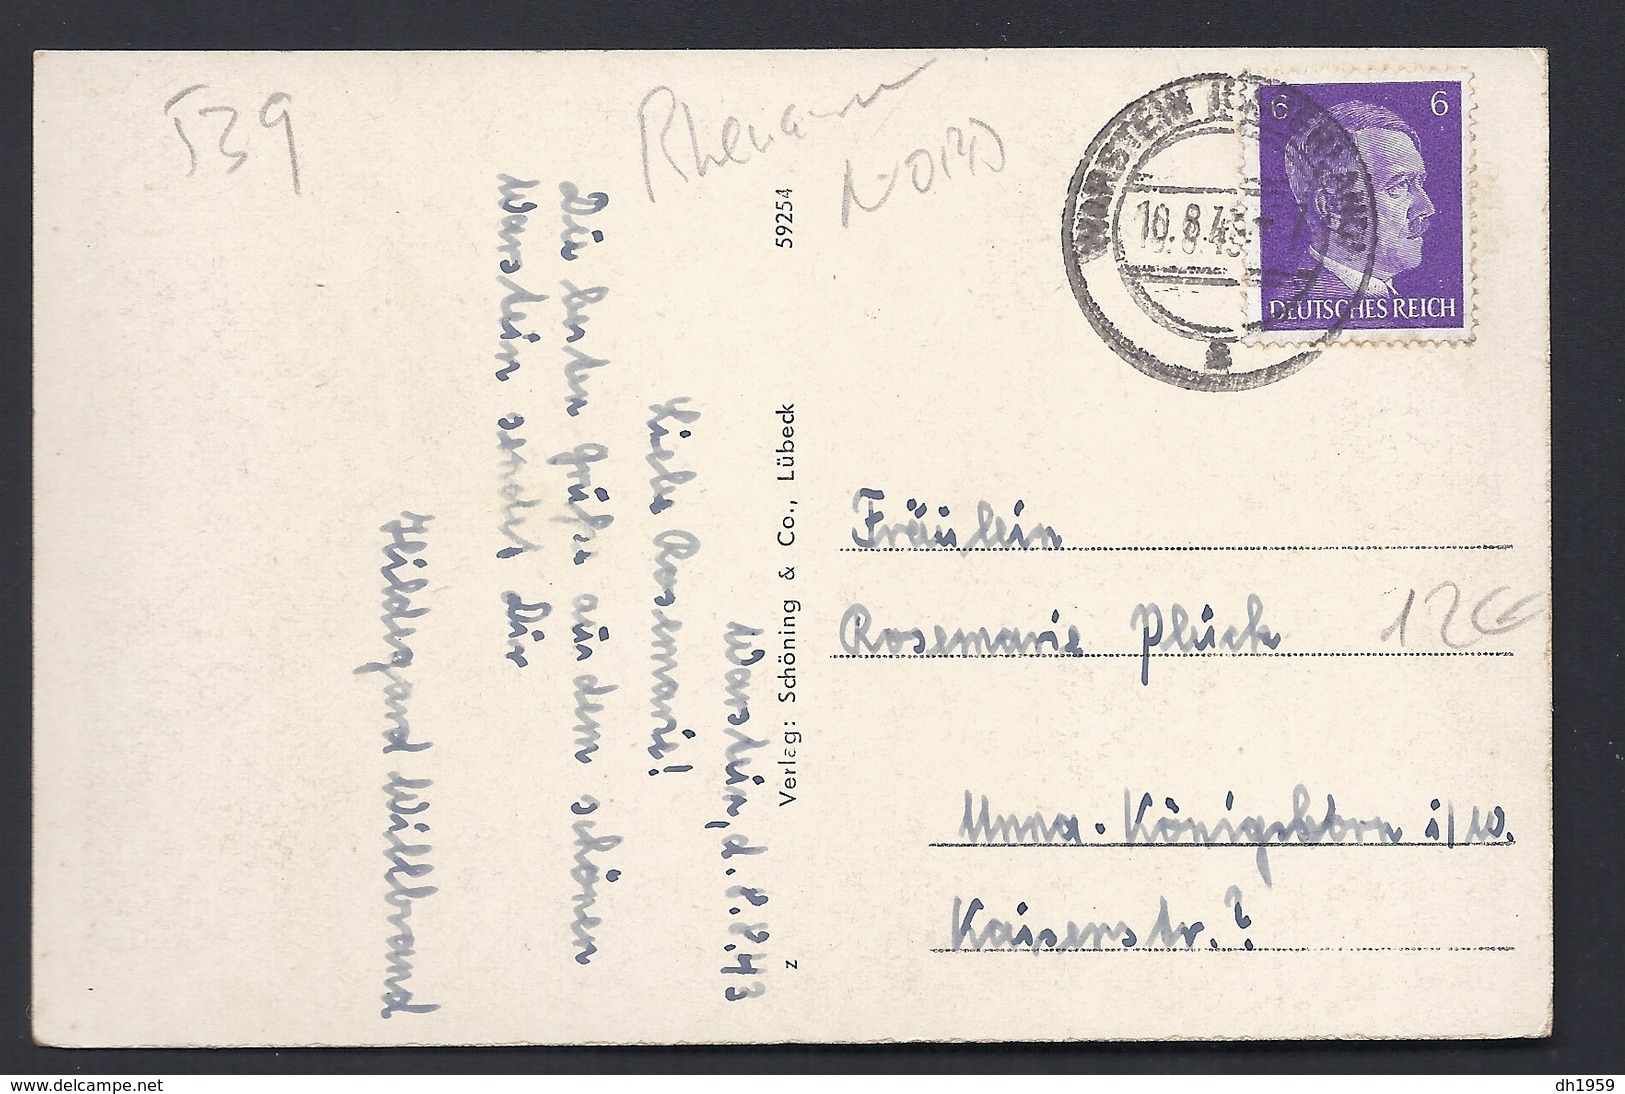 539
Rhenanie
NORD
Warstein, d. 8.8.43
Liebe Rosemarie!
Die besten Grüße aus dem schönen
Warstein sendet Dir
Hildegard Willbrand
59254
Verlag: Schöning & Co., Lübeck
z
WARSTEIN (SAUERLAND)
10.8.43
a
6
6
DEUTSCHES REICH
Fräulein
Rosemarie Plück
12€
Unna-Königsborn i/W.
Kaiserstr.?
delcampe.net
dh1959